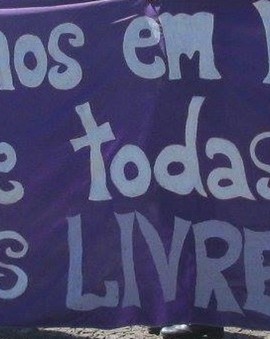 mos em
todas
s LIVRE